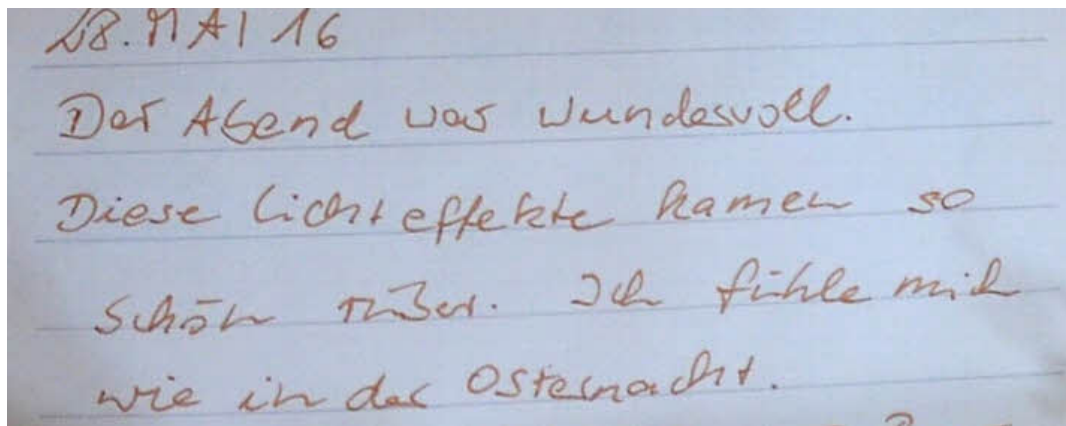 28. MAI 16
Der Abend war wundervoll.
Diese Lichteffekte kamen so
schön rüber. Ich fühle mich
wie in der Osternacht.